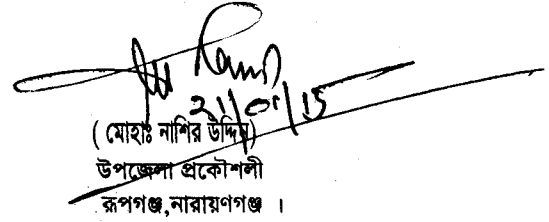 21/01/15
( মোহাঃ নাশির উদ্দিন)
উপজেলা প্রকৌশলী
রূপগঞ্জ,নারায়ণগঞ্জ ।